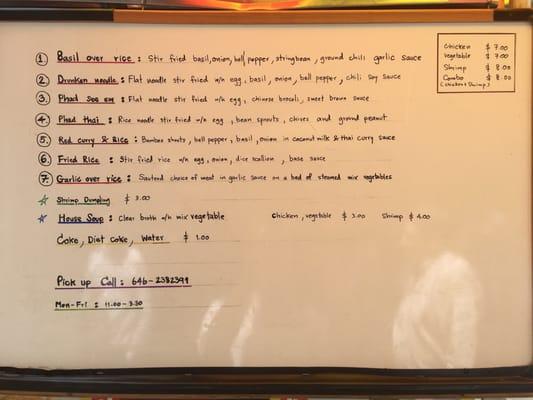 ① Basil over rice : Stir fried basil, onion, bell pepper, stringbean, ground chili garlic sauce
② Drunken noodle : Flat noodle stir fried w/n egg, basil, onion, bell pepper, chili soy sauce
③ Phad see ew : Flat noodle stir fried w/n egg, chinese brocoli, sweet brown sauce
④ Phad thai : Rice noodle stir fried w/n egg, bean sprouts, chives and ground peanut
⑤ Red curry & Rice : Bamboo shoots, bell pepper, basil, onion in coconut milk & thai curry sauce
⑥ Fried Rice : Stir fried rice w/n egg, onion, dice scallion, base sauce
⑦ Garlic over rice : Sauteed choice of meat in garlic sauce on a bed of steamed mix vegetables
☆ Shrimp Dumpling $ 3.00
☆ House Soup : Clear broth w/n mix vegetable Chicken, vegetable $ 3.00 Shrimp $ 4.00
Coke, Diet Coke, Water $ 1.00
Pick up Call : 646-2382399
Mon-Fri : 11.00-3.30
Chicken $ 7.00
Vegetable $ 7.00
Shrimp $ 8.00
Combo $ 8.00
(chicken & shrimp)